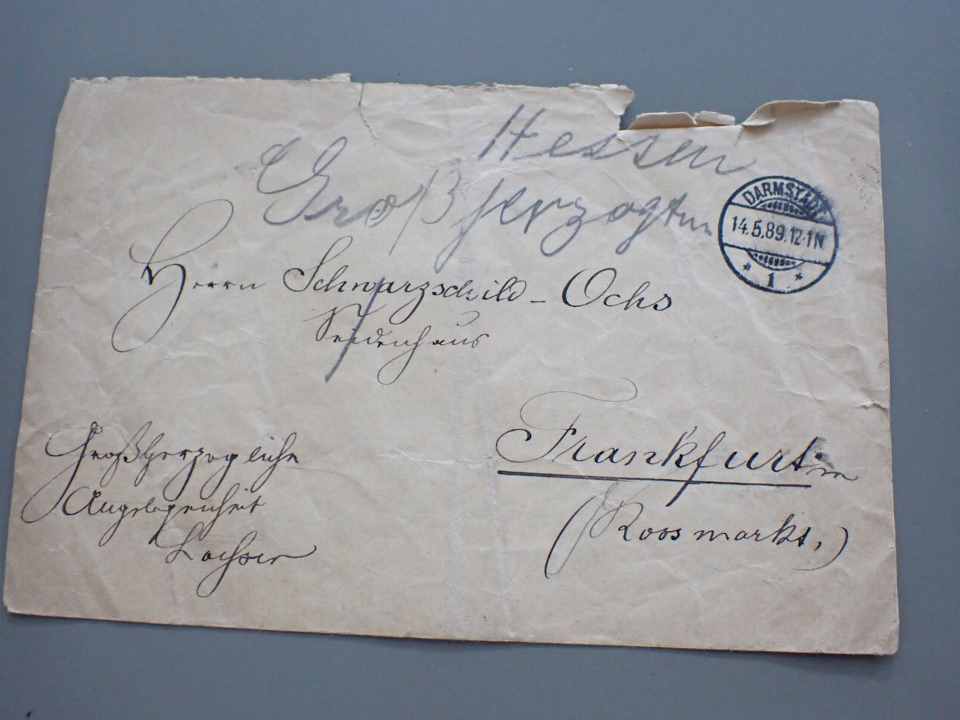 Hessen
Großherzogtum
DARMSTADT
14.5.89.12-1N
* 1 *
Herrn Schwarzschild-Ochs
Seidenhaus
Frankfurt
(Rossmarkt.)
Großherzogliche
Angelegenheit